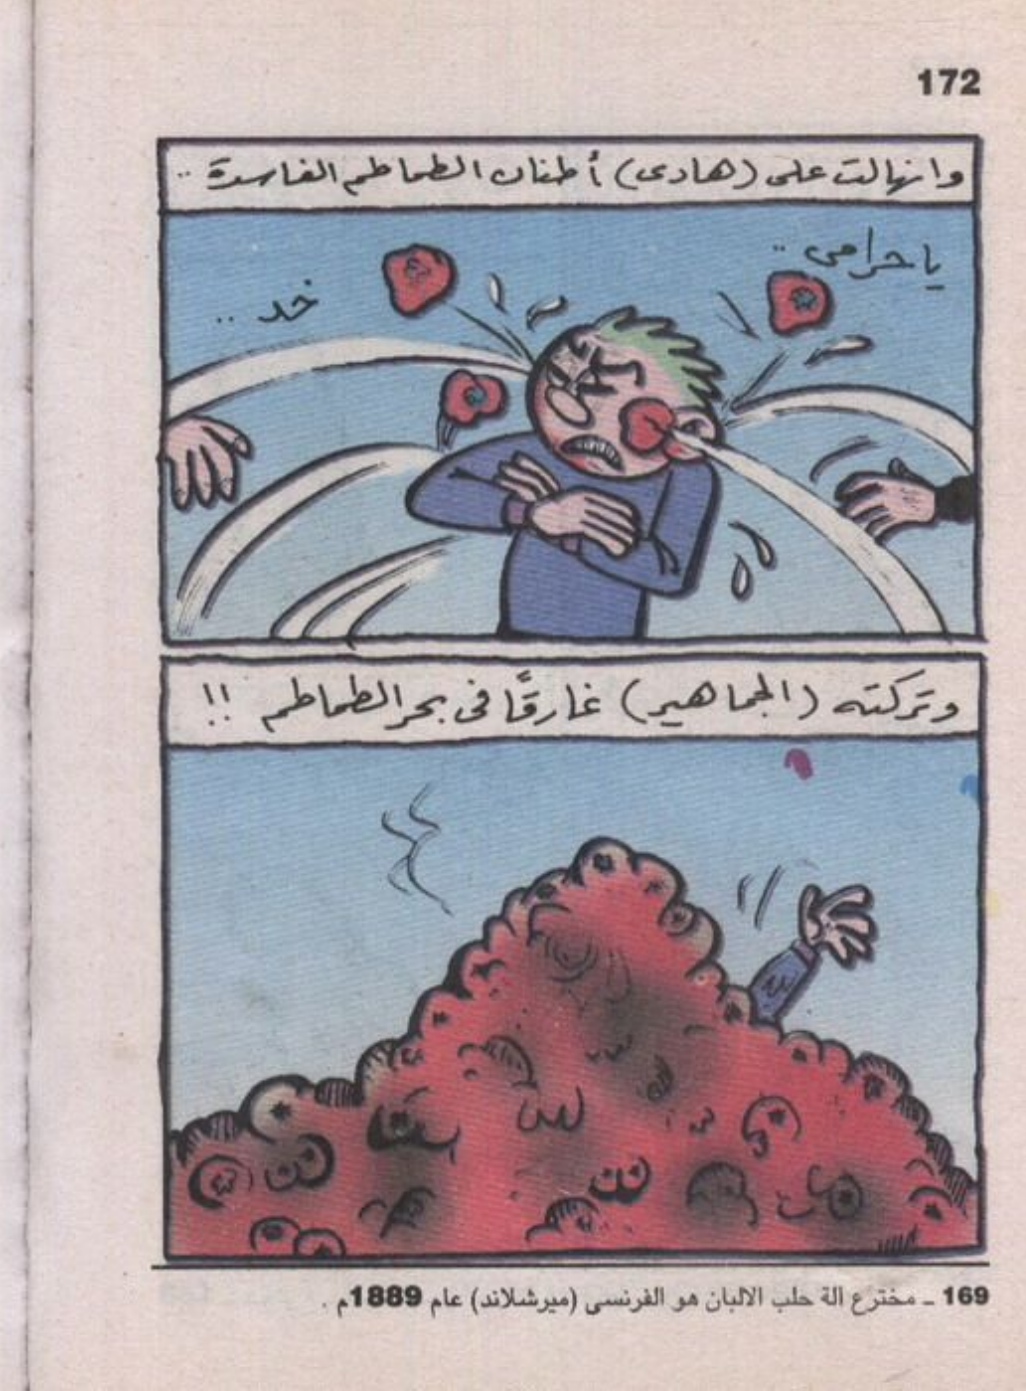 172
وانهالت على (هادى) أطنان الطماطم الفاسدة ..
يا حرامى ..
خد ..
وتركته (الجماهير) غارقًا فى بحر الطماطم !!
169 ـ مخترع آلة حلب الالبان هو الفرنسى (ميرشلاند) عام 1889م .